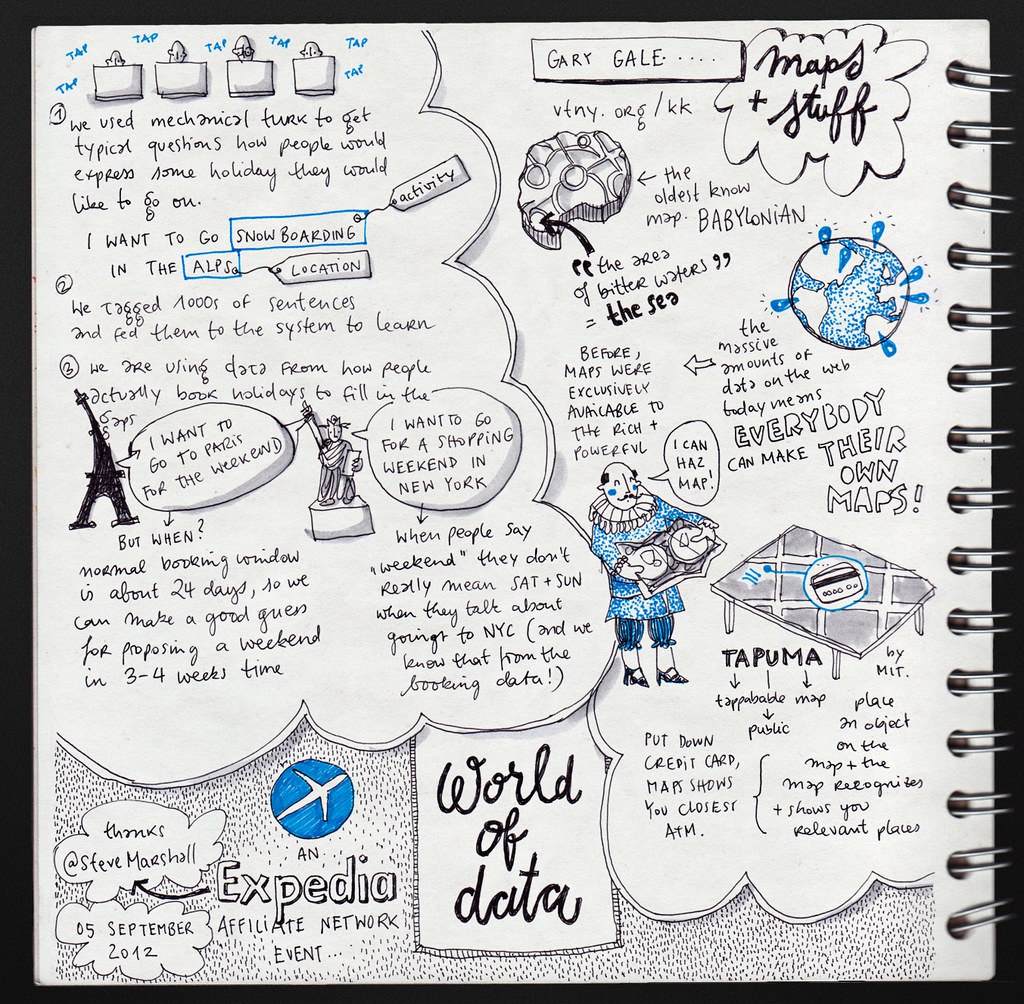 TAP
TAP
TAP
TAP
TAP
TAP
① we used mechanical turk to get
typical questions how people would
express some holiday they would
like to go on.
activity
I WANT TO GO SNOWBOARDING
IN THE ALPS
LOCATION
② We tagged 1000s of sentences
and fed them to the system to learn
③ we are using data from how people
actually book holidays to fill in the
gaps
I WANT TO
GO TO PARIS
FOR THE WEEKEND
BUT WHEN?
normal booking window
is about 24 days, so we
can make a good guess
for proposing a weekend
in 3-4 weeks time
I WANT TO GO
FOR A SHOPPING
WEEKEND IN
NEW YORK
when people say
„weekend" they don't
really mean SAT + SUN
when they talk about
goingt to NYC (and we
know that from the
booking data!)
GARY GALE.....
maps
+ stuff
vtny.org/kk
← the
oldest know
map. BABYLONIAN
“the area
of bitter waters”
= the sea
the
massive
amounts of
data on the web
today means
EVERYBODY
CAN MAKE THEIR
OWN
MAPS!
BEFORE,
MAPS WERE
EXCLUSIVELY
AVAILABLE TO
THE RICH +
POWERFUL
I CAN
HAZ
MAP!
TAPUMA
by
MIT.
tappabable map
public
place
an object
on the
map + the
map recognizes
+ shows you
relevant places
PUT DOWN
CREDIT CARD,
MAPS SHOWS
YOU CLOSEST
ATM.
World
of
data
thanks
@SteveMarshall
05 SEPTEMBER
2012
AN
Expedia
AFFILIATE NETWORK
EVENT...